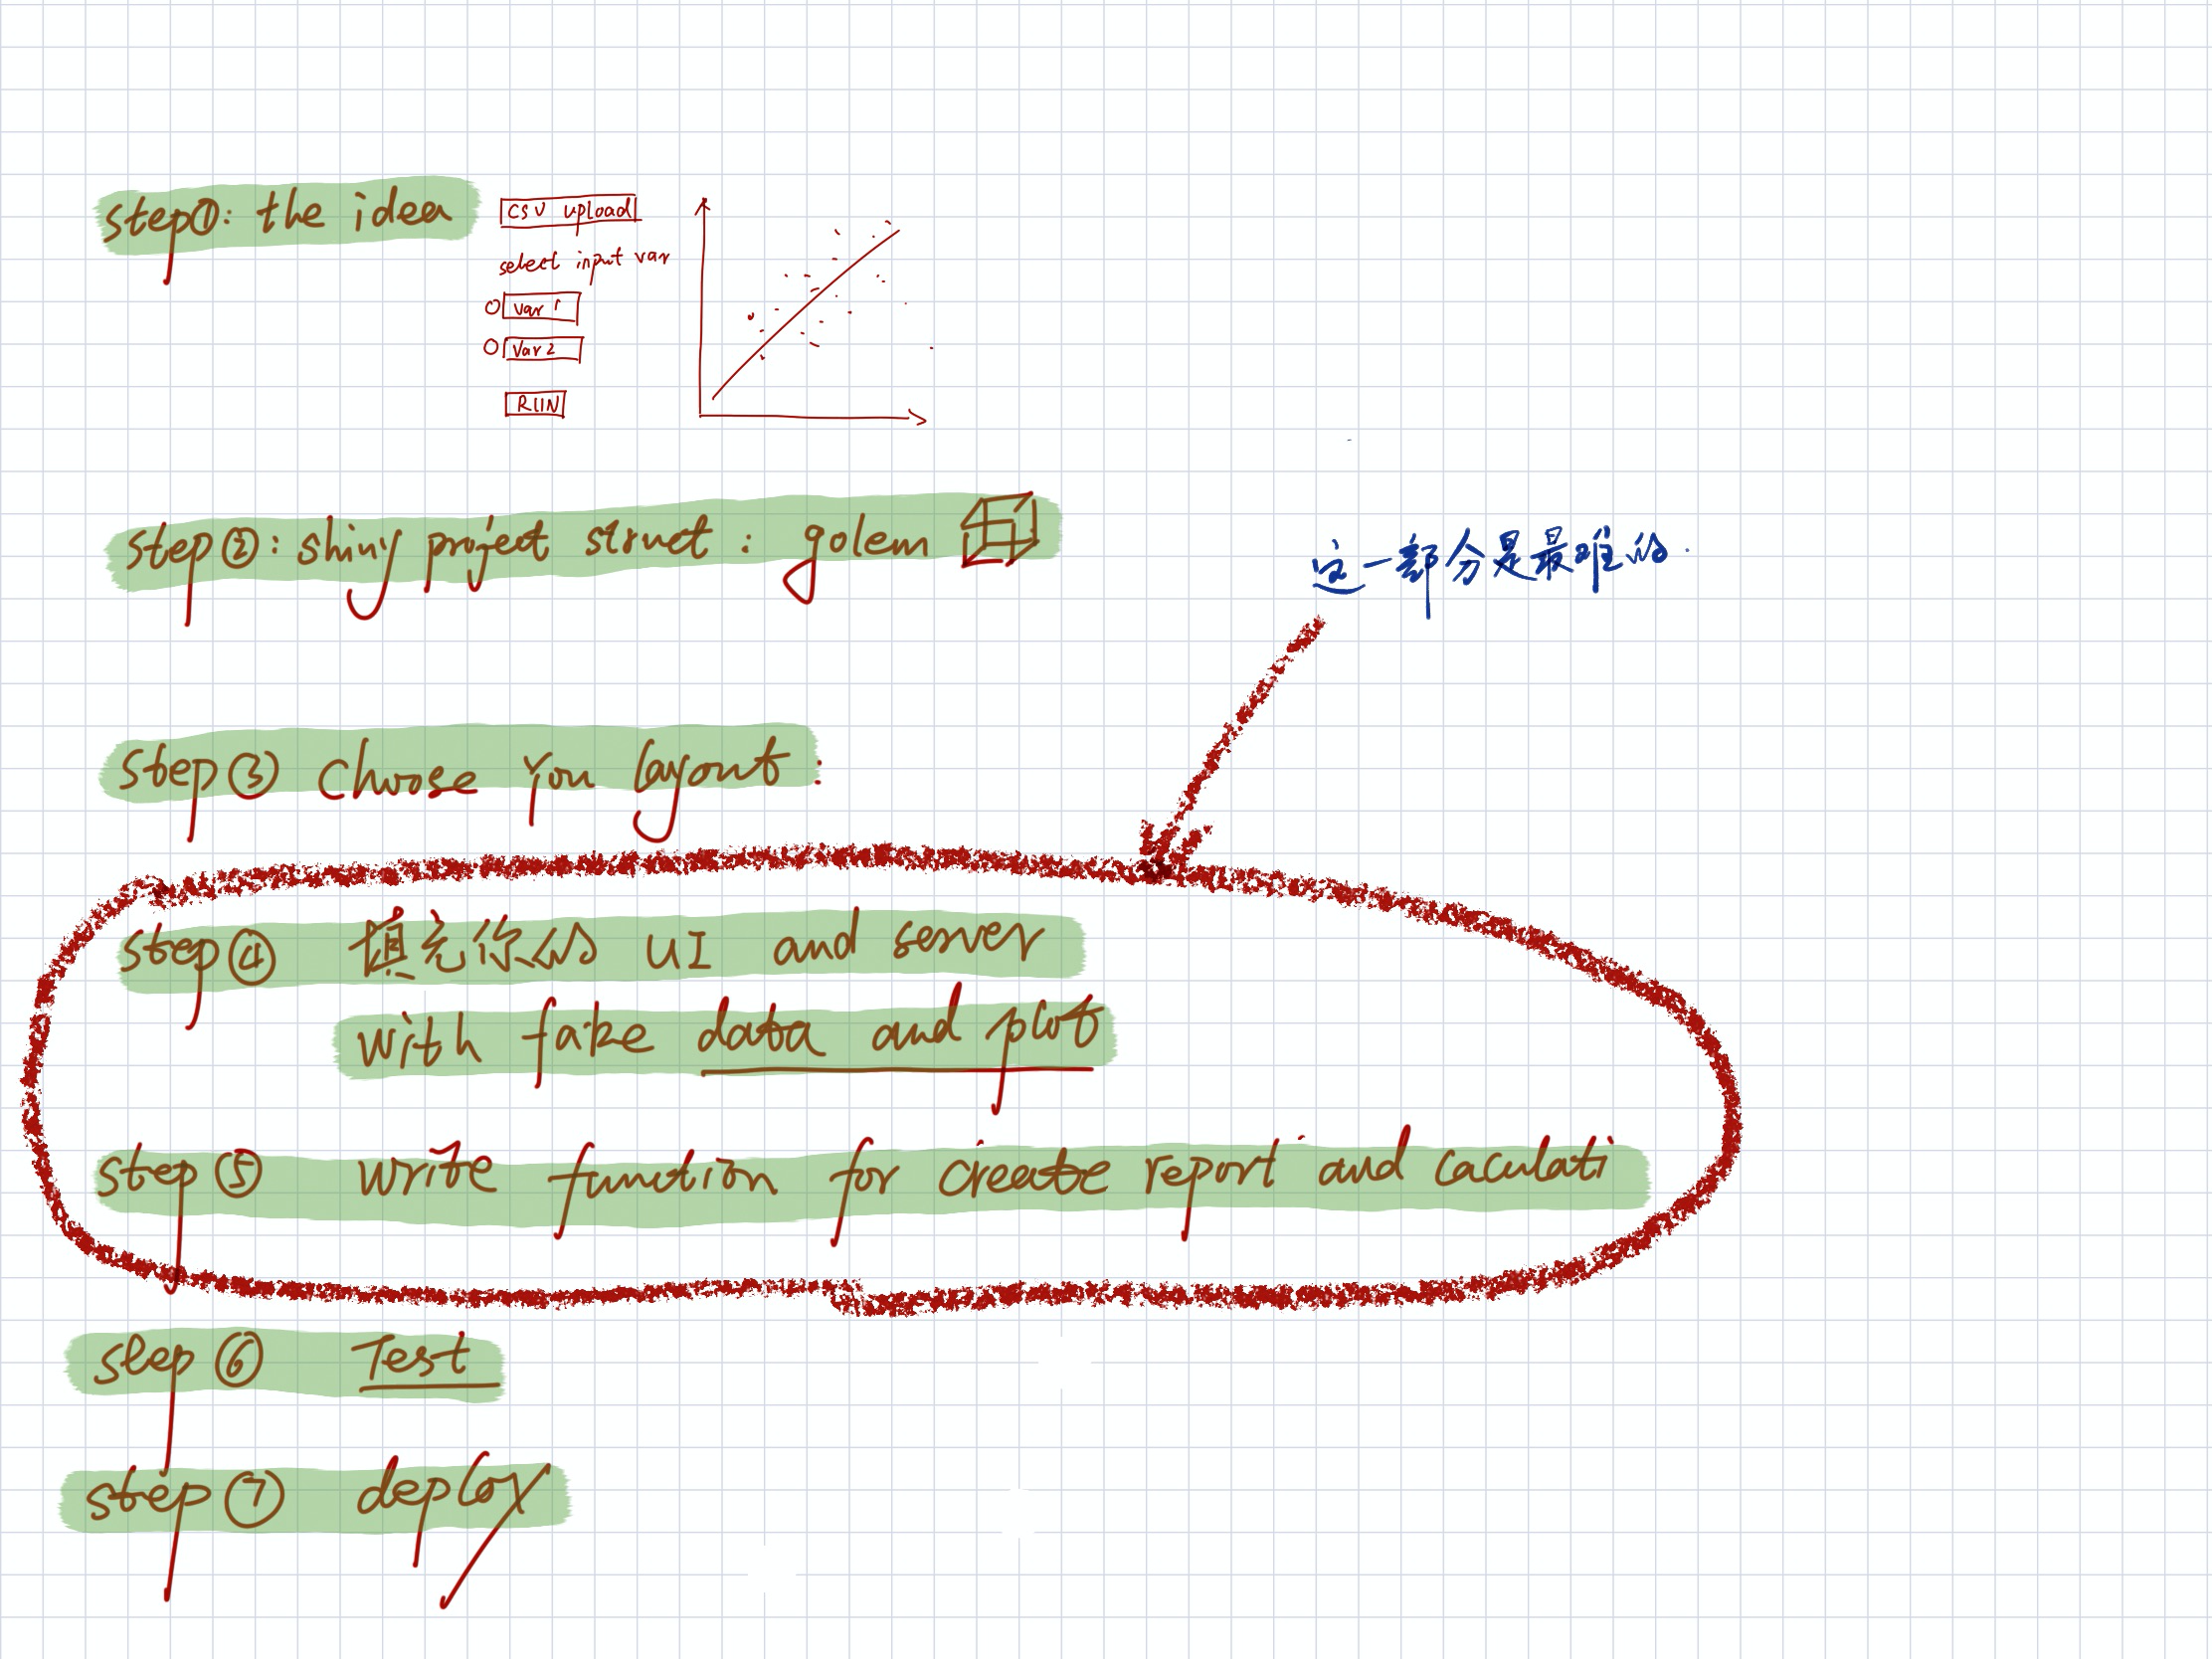 step①: the idea
CSV upload
select input var
var 1
Var 2
RUN
step②: shiny project struct: golem 包
这一部分是最难的.
step③ Choose You layout:
step④ 填充你的 UI and server
with fake data and plot
step⑤ write function for create report and caculati
step⑥ Test
step⑦ deploy